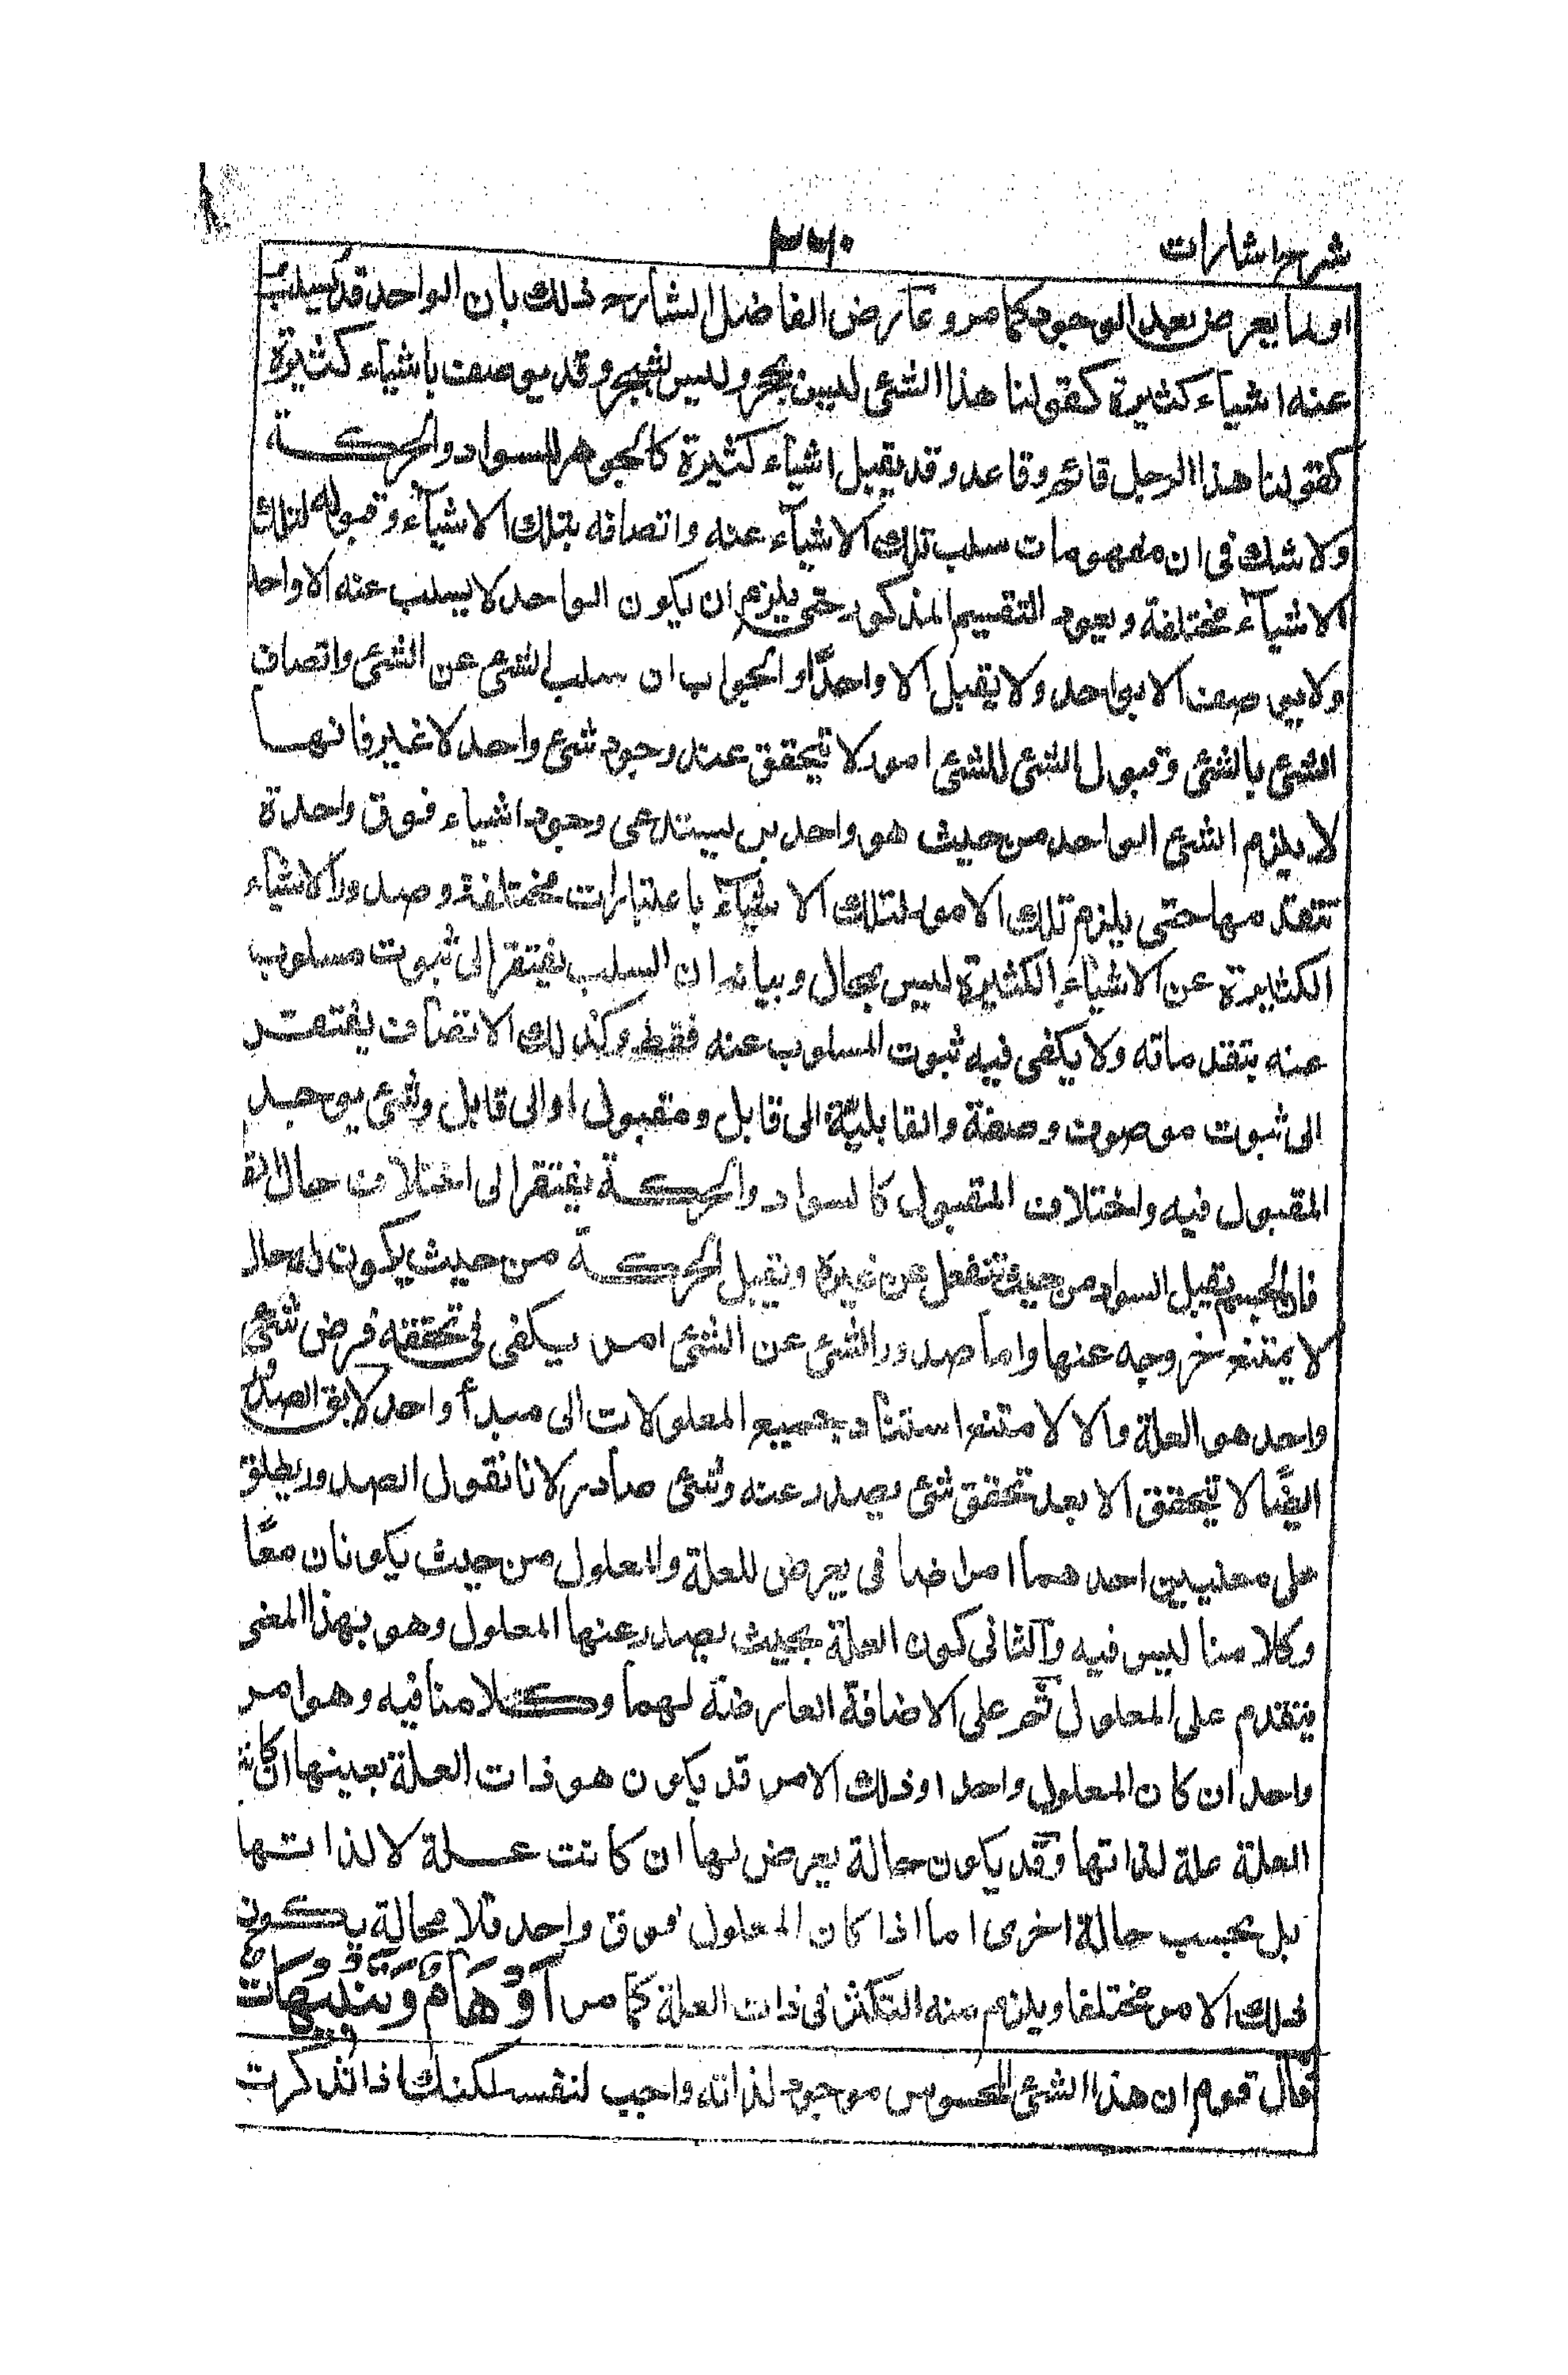 شرح اشارات
او لما يعرض بعد الوجود كما مر و عارض الفاضل الشارح ذلك بان الواحد قد يسلب
عنه اشياء كثيرة كقولنا هذا الشئ ليس بحجر وليس بشجر وقد يوصف باشياء كثيرة
كقولنا هذا الرجل قائم وقاعد وقد يقبل اشياء كثيرة كالجوهر للسواد والحركة
ولا شك فى ان مفهومات سلب تلك الاشياء عنه واتصافه بتلك الاشياء وقبوله لتلك
الاشياء مختلفة ويعود التقسيم المذكور حتى يلزم ان يكون الواحد لا يسلب عنه الا واحد
ولا يوصف الا بواحد ولا يقبل الا واحدًا و الجواب ان سلب الشئ عن الشئ واتصاف
الشئ بالشئ وقبول الشئ للشئ امور لا تتحقق عند وجود شئ واحد لا غير فانها
لا يلزم الشئ الواحد من حيث هو واحد بل يستدعى وجود اشياء فوق واحدة
تتقدمها حتى يلزم تلك الامور لتلك الاشياء باعتبارات مختلفة وصدور الاشياء
الكثيرة عن الاشياء الكثيرة ليس بمحال وبيانه ان السلب يفتقر الى ثبوت مسلوب
عنه يتقدمانه ولا يكفى فيه ثبوت المسلوب عنه فقط وكذلك الاتصاف يفتقر
الى ثبوت موصوف وصفة والقابلية الى قابل ومقبول او الى قابل وشئ يوجد
المقبول فيه واختلاف المقبول كالسواد والحركة يفتقر الى اختلاف حال القا
فان الجسم يقبل السواد من حيث ينفعل عن غيره ويقبل الحركة من حيث يكون له حال
لا يمتنع خروجه عنها واما صدور الشئ عن الشئ امر يكفى فى تحققه فرض شئ
واحد هو العلة والا لامتنع استناد جميع المعلولات الى مبدأ واحد لا يق الصدور
ايضًا لا يتحقق الا بعد تحقق شئ يصدر عنه وشئ صادر لانا نقول الصدور يطلق
على معنيين احدهما امر اضافى يعرض للعلة والمعلول من حيث يكونان معًا
وكلامنا ليس فيه والثانى كون العلة بحيث يصدر عنها المعلول وهو بهذا المعنى
يتقدم على المعلول ثم على الاضافة العارضة لهما وكلامنا فيه وهو امر
واحد ان كان المعلول واحدا وذلك الامر قد يكون هو ذات العلة بعينها ان كانت
العلة علة لذاتها وقد يكون حالة يعرض لها ان كانت علة لا لذاتها
بل بحسب حالة اخرى اما اذا كان المعلول فوق واحد فلا محالة يكون
ذلك الامر مختلفا ويلزم منه التكثر فى ذات العلة كما مر أَوْهَامٌ وَتَنْبِيهَات
قال قوم ان هذا الشئ المحسوس موجود لذاته واجب لنفسه لكنك اذا تذكرت